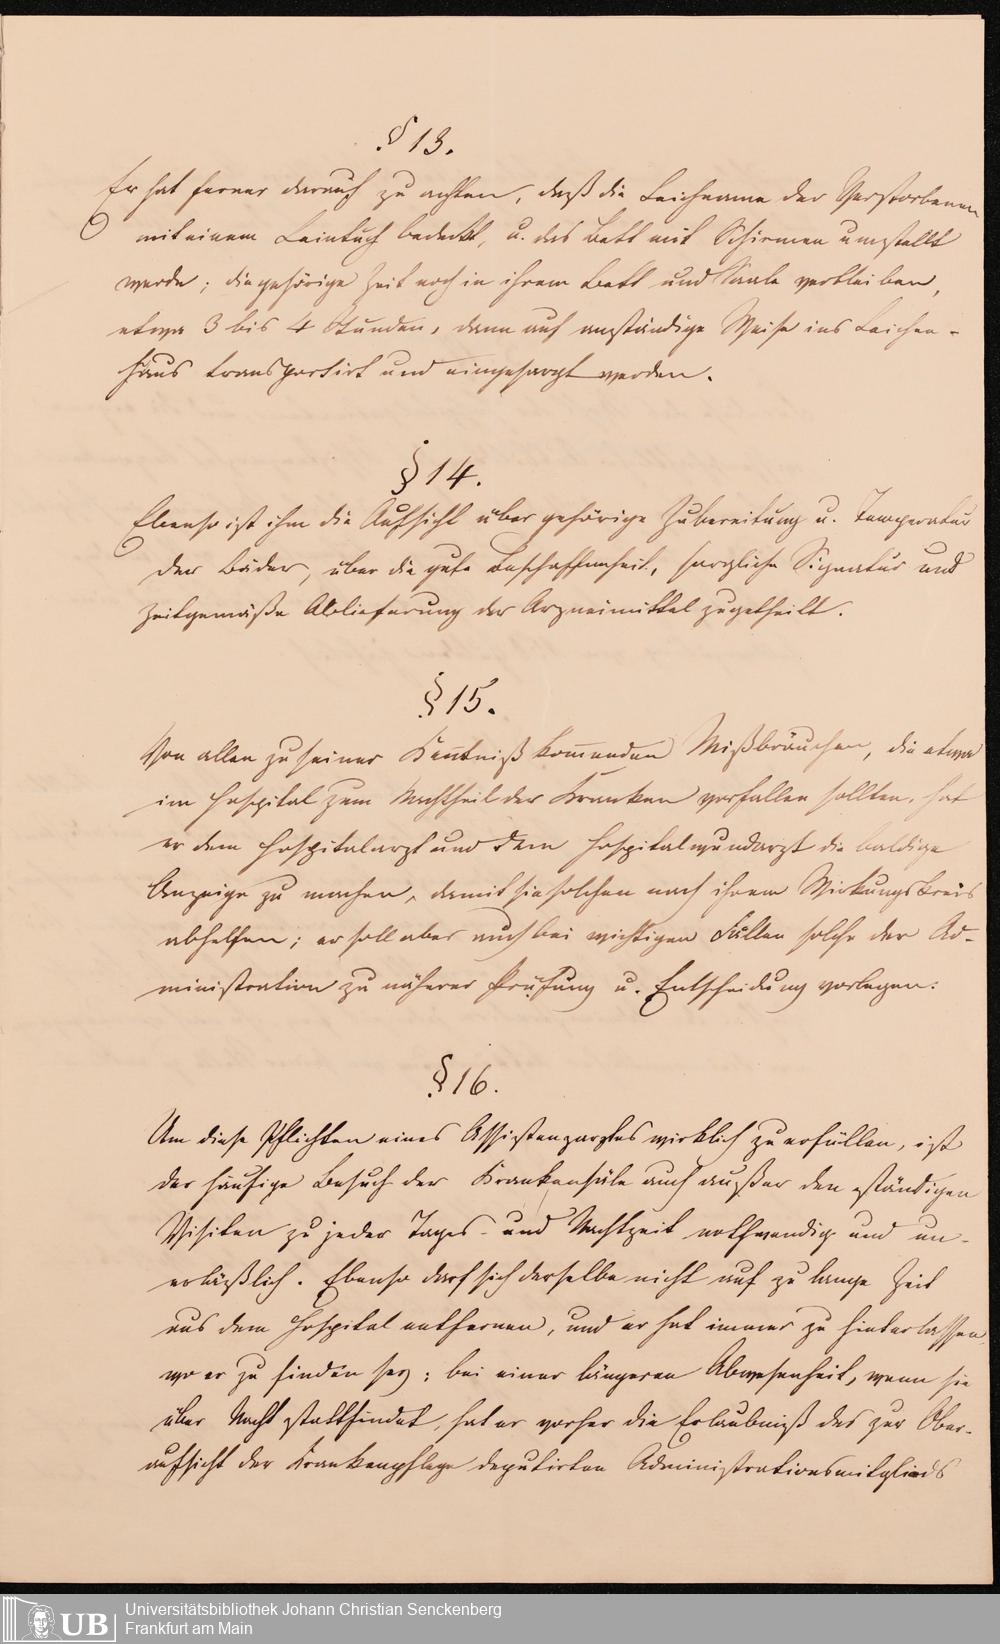 § 13.
Er hat ferner darauf zu achten, daß die Leichname der Verstorbenen
mit einem Leintuch bedeckt, u. das Bett mit Schirmen umstellt
werde; die gehörige Zeit noch in ihrem Bett und Saale verbleiben,
etwa 3 bis 4 Stunden, dann auf anständige Weise ins Leichen-
haus transportirt und eingesargt werden.
§ 14.
Ebenso ist ihm die Aufsicht über gehörige Zubereitung u. Temperatur
der Bäder, über die gute Beschaffenheit, sorgliche Signatur und
zeitgemäße Ablieferung der Arzneimittel zugetheilt.
§ 15.
Von allen zu seiner Kentniß komenden Mißbräuchen, die etwa
im Hospital zum Nachtheil der Kranken vorfallen sollten, hat
er dem Hospitalarzt und dem Hospitalwundarzt die baldige
Anzeige zu machen, damit sie solchen nach ihrem Wirkungskreis
abhelfen; er soll aber auch bei wichtigen Fällen solche der Ad-
ministration zu näherer Prüfung u. Entscheidung vorlegen.
§ 16.
Um diese Pflichten eines Assistenzarztes wirklich zu erfüllen, ist
der häufige Besuch der Krankensäle auch außer den ständigen
Visiten zu jeder Tages- und Nachtzeit nothwendig und un-
erläßlich. Ebenso darf sich derselbe nicht auf zu lange Zeit
aus dem Hospital entfernen, und er hat immer zu hinterlassen,
wo er zu finden sey; bei einer längeren Abwesenheit, wenn sie
über Nacht stattfindet, hat er vorher die Erlaubniß des zur Ober-
aufsicht der Krankenpflege deputirten Administrationsmitglieds
UB
Universitätsbibliothek Johann Christian Senckenberg
Frankfurt am Main